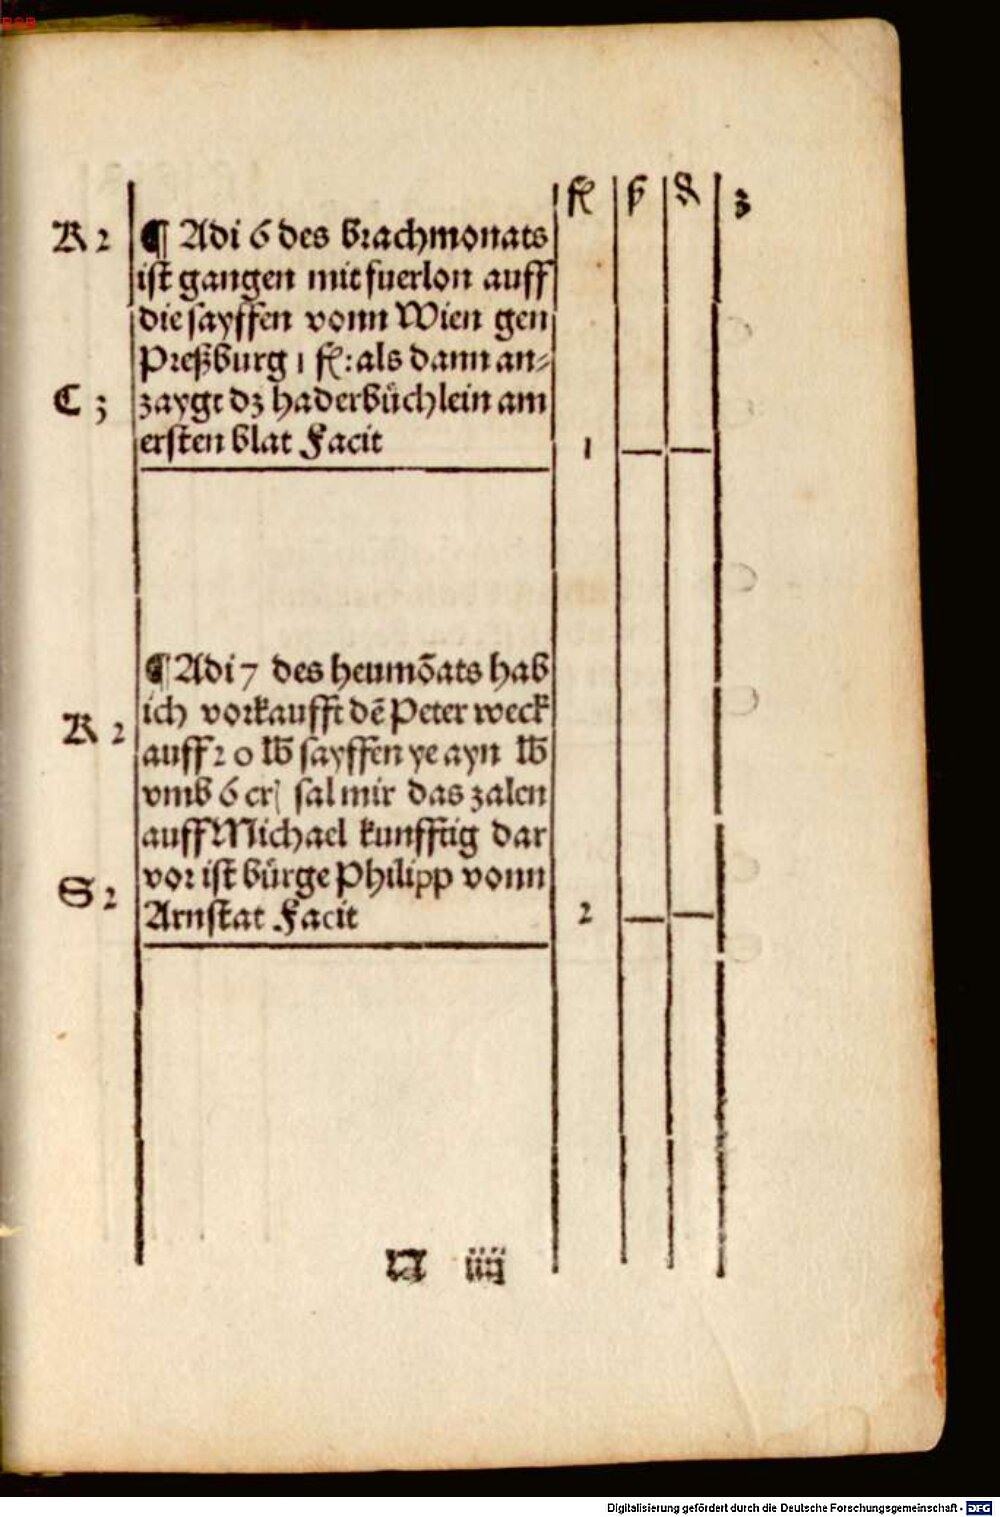 fl ß ₰ ʒ
K 2 ¶ Adi 6 des brachmonats
ist gangen mit fuerlon auff
die sayffen vonn Wien gen
Preßburg 1 fl: als dann an⸗
C 3 zaygt dz haderbüchlein am
ersten blat Facit 1 — —
¶ Adi 7 des heumōats hab
K 2 ich vorkaufft dē Peter weck
auff 20 lb sayffen ye ayn lb
vmb 6 cr sal mir das zalen
auff Michael kunfftig dar
S 2 vor ist bürge Philipp vonn
Arnstat Facit 2 — —
iiij
Digitalisierung gefördert durch die Deutsche Forschungsgemeinschaft - DFG